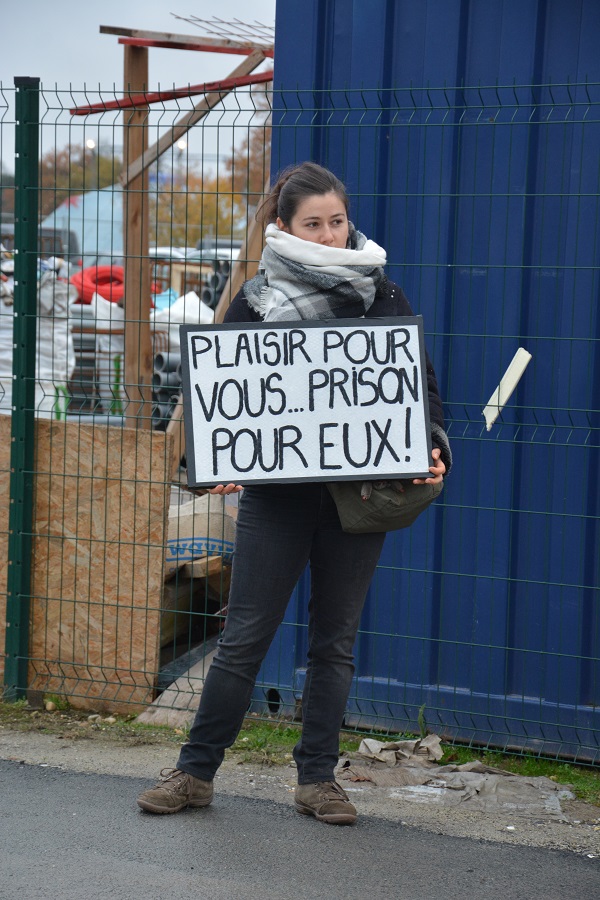 PLAISIR POUR
VOUS... PRISON
POUR EUX!